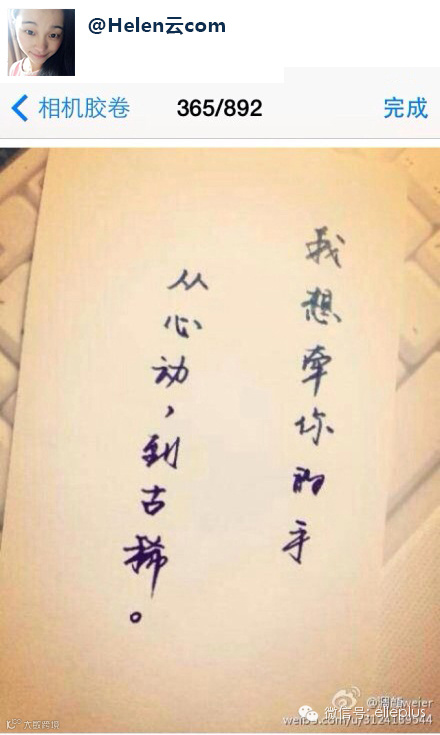 @Helen云com
相机胶卷
365/892
完成
我想牵你的手
从心动，到古稀。
微信号: elleplus
weibo.com/u/3124169544
大数跨境